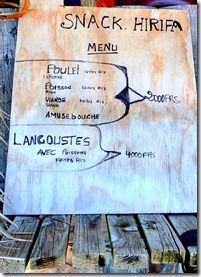 SNACK. HIRIFA
MENU
POULET FRITES RIZ
CHICKEN
POISSON FRITES RIZ
FISH
VIANDE FRITES RIZ
2000FRS
AMUSE BOUCHE
LANGOUSTES
AVEC POISSONS
FRITES RIZ
4000FRS